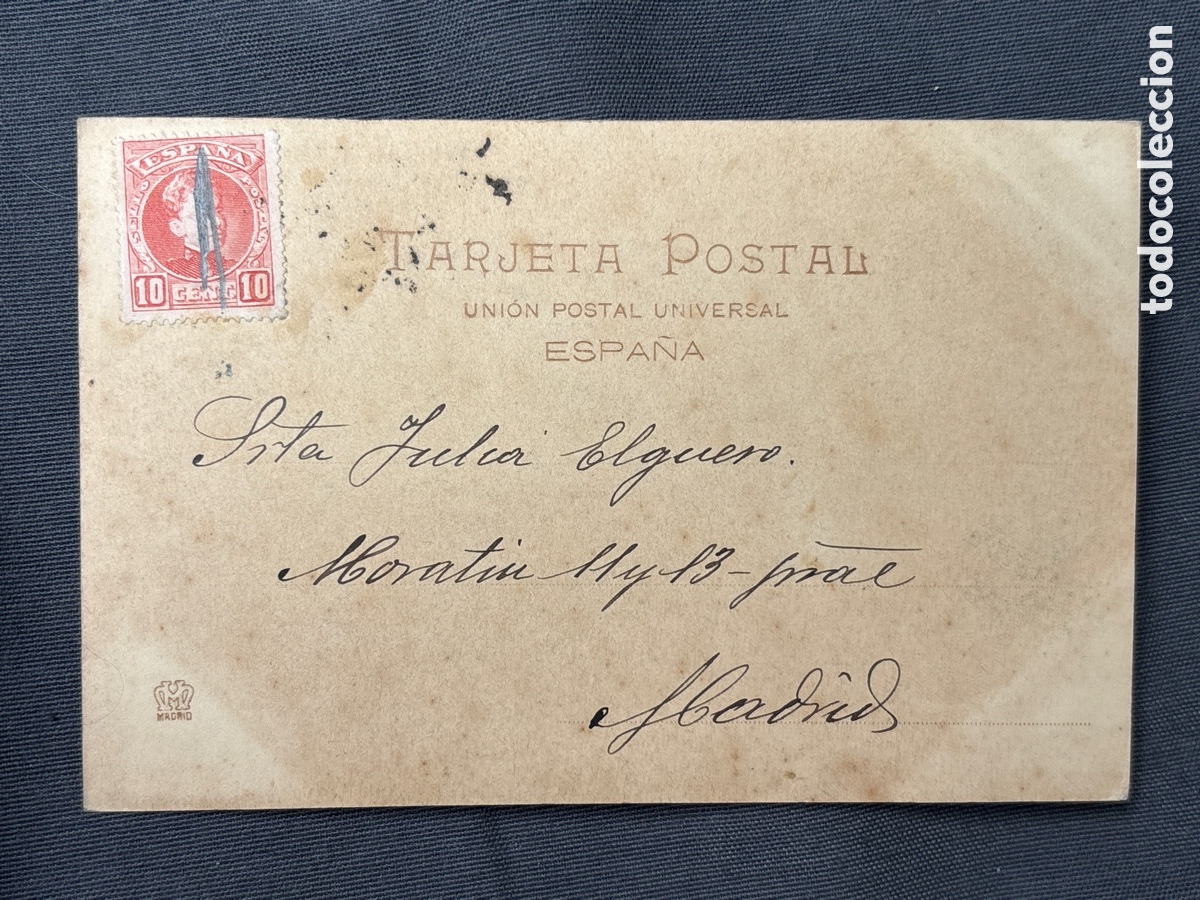 ESPAÑA
SELLO POSTAL
10 CENT 10
TARJETA POSTAL
UNIÓN POSTAL UNIVERSAL
ESPAÑA
Srta Julia Elguero.
Moratin 11 y 13 - pral
Madrid
MADRID
todocoleccion